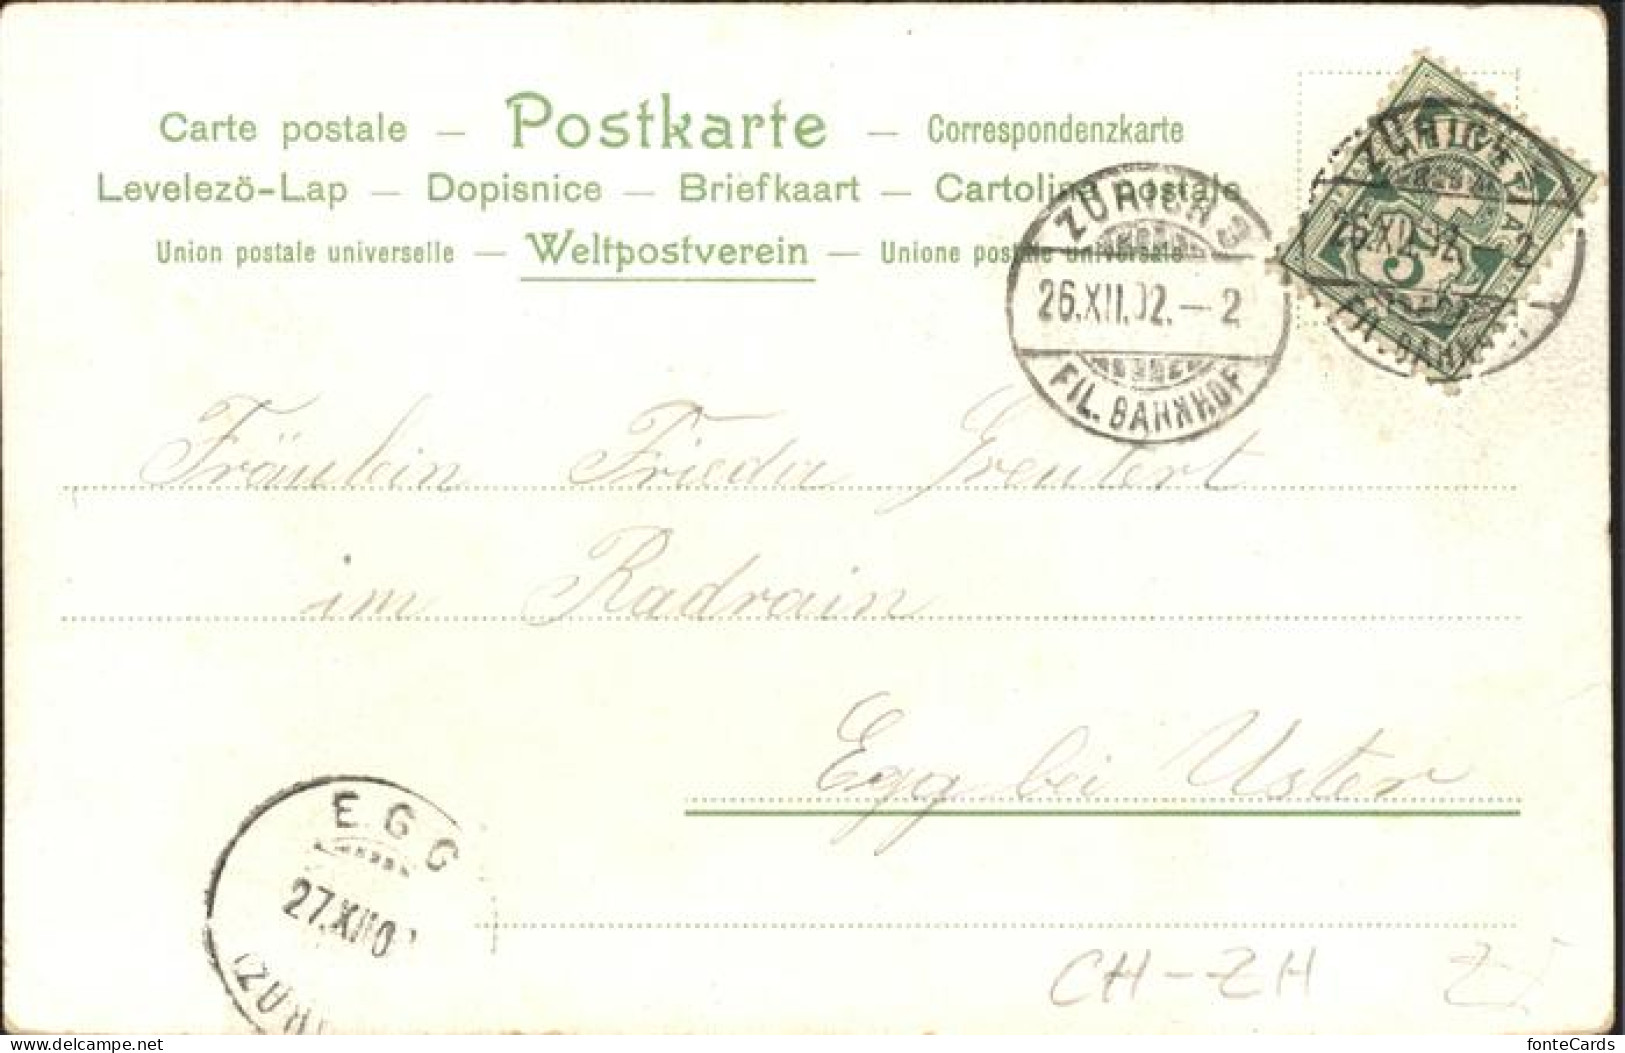 Carte postale — Postkarte — Correspondenzkarte
Levelezö-Lap — Dopisnice — Briefkaart — Cartolina postale
Union postale universelle — Weltpostverein — Unione postale universale
ZÜRICH 3
26.XII.02.–2
FIL. BAHNHOF
ZÜRICH
26.XII.02. 2
FIL. BAHNHOF
5
Fräulein Frieda Greutert
im Radrain
Egg bei Uster
EGG
27.XII 0
(ZÜRI
CH-ZH
delcampe.net
fonteCards